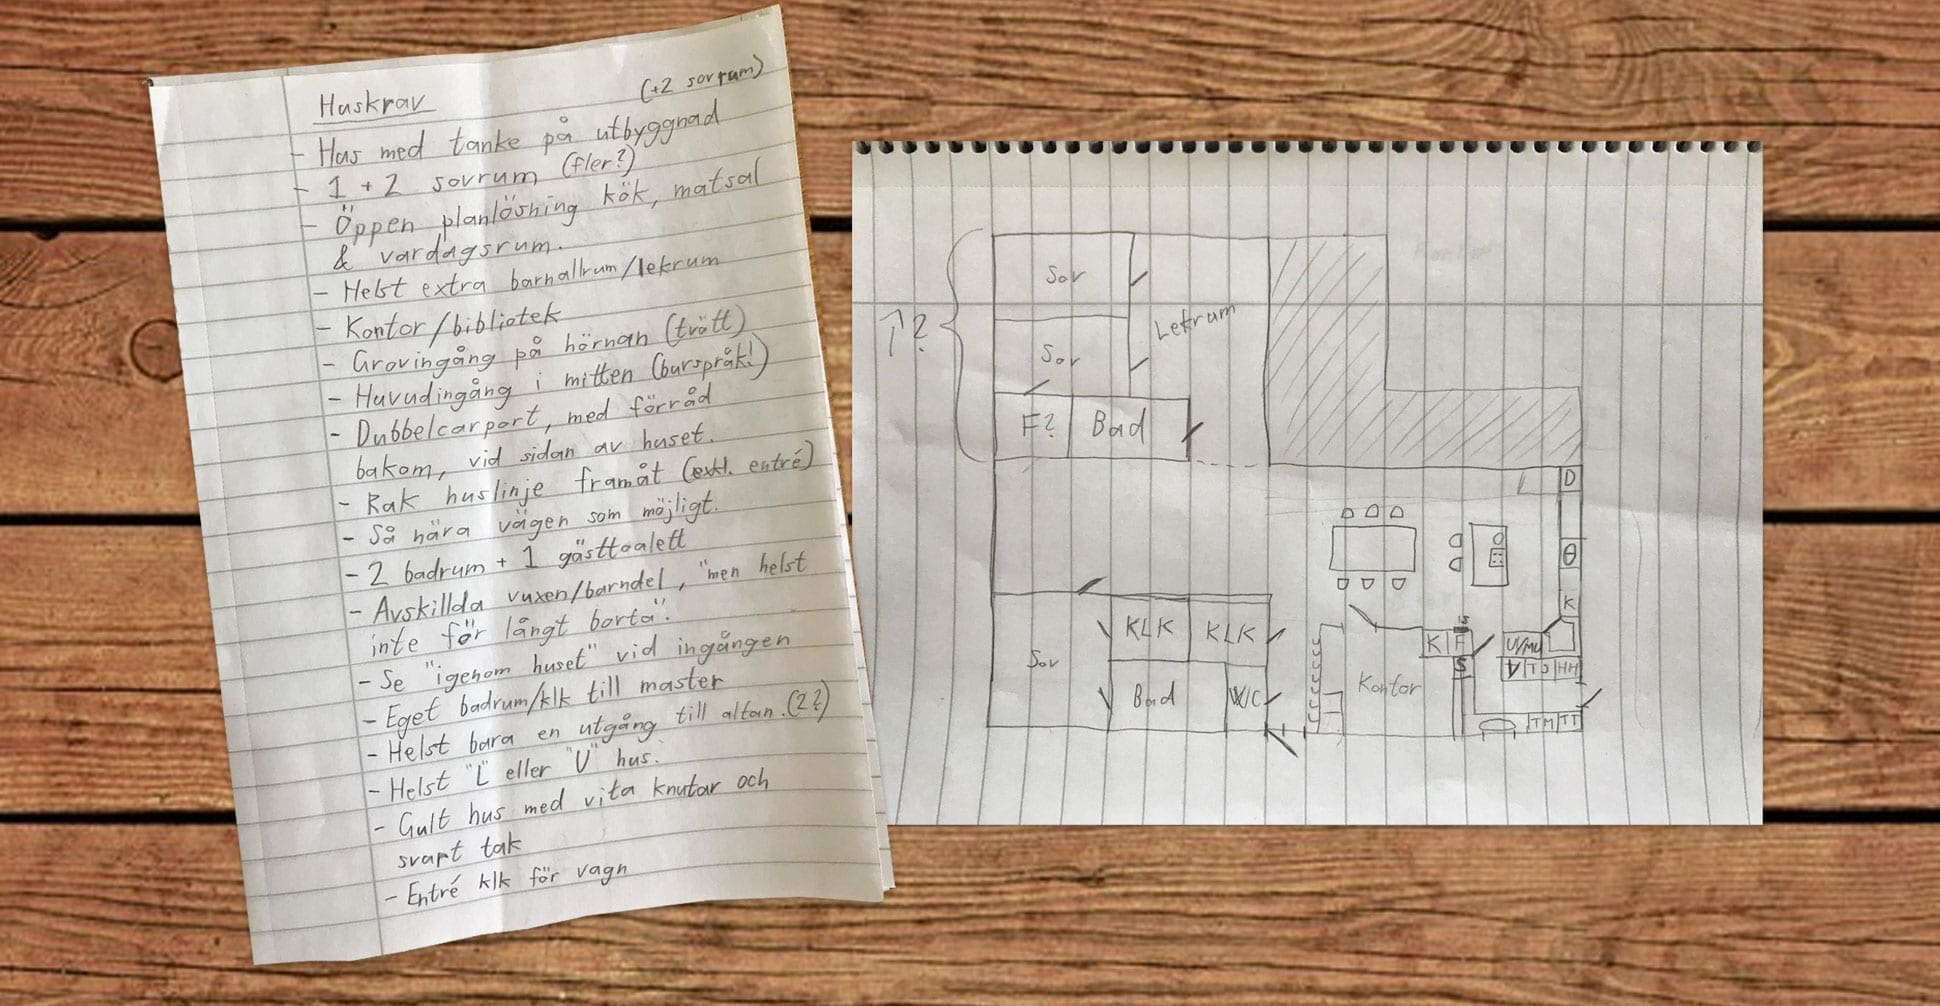 Huskrav
(+2 sovrum)
- Hus med tanke på utbyggnad
- 1 + 2 sovrum (fler?)
- Öppen planlösning kök, matsal
& vardagsrum.
- Helst extra barnallrum/lekrum
- Kontor/bibliotek
- Grovingång på hörnan (tvätt)
- Huvudingång i mitten (burspråk!)
- Dubbelcarport, med förråd
bakom, vid sidan av huset.
- Rak huslinje framåt (exkl. entré)
- Så nära vägen som möjligt.
- 2 badrum + 1 gästtoalett
- Avskillda vuxen/barndel, "men helst
inte för långt borta".
- Se "igenom huset" vid ingången
- Eget badrum/klk till master
- Helst bara en utgång till altan. (2?)
- Helst "L" eller "U" hus.
- Gult hus med vita knutar och
svart tak
- Entré klk för vagn
Sov
Lekrum
?
Sov
F? Bad
D
K
KLK KLK
K F
U/MU
Sov
S
V TS HH
Kontor
Bad WC
TM TT